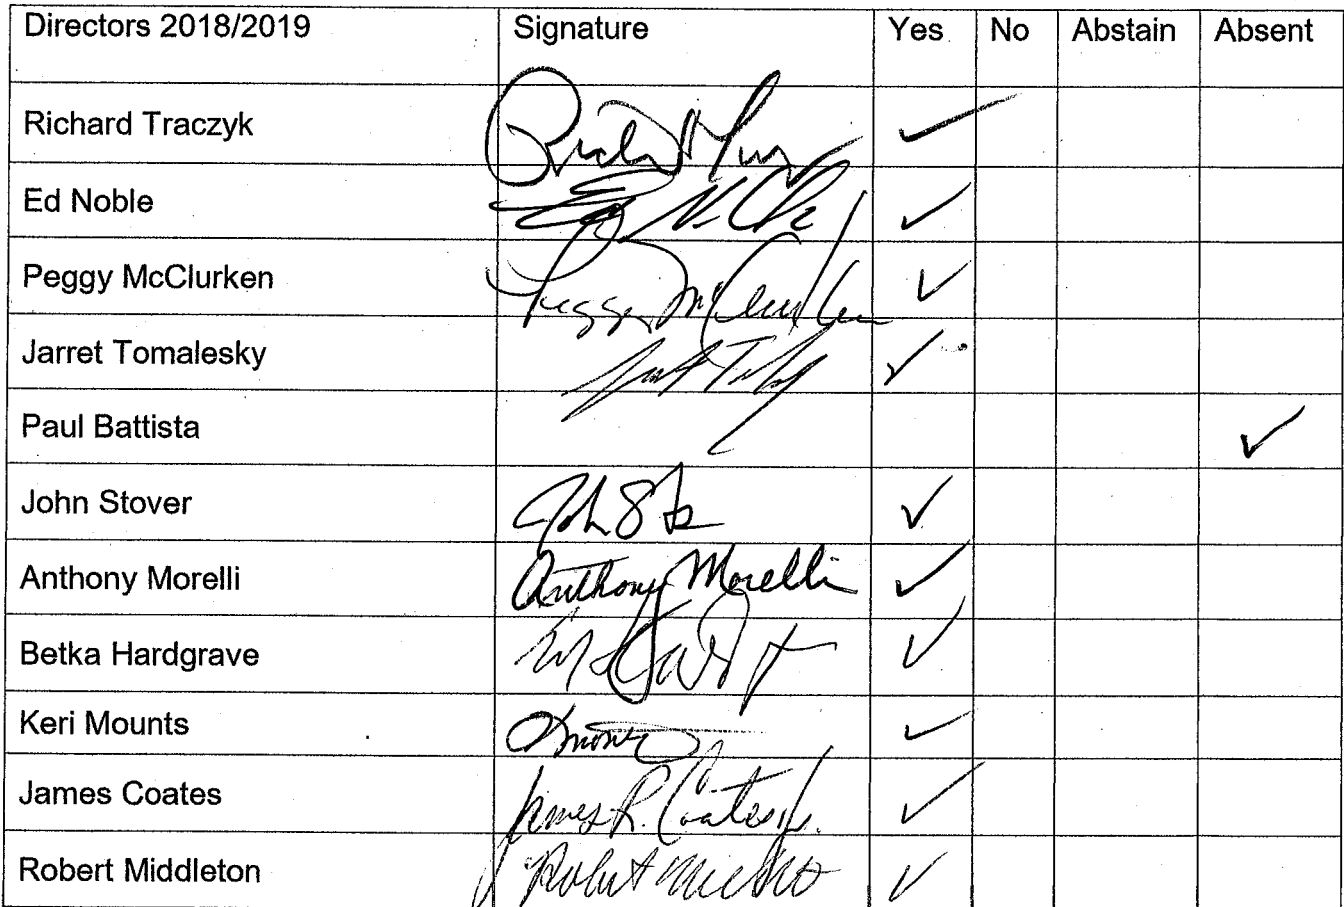 Directors 2018/2019 Signature Yes No Abstain Absent
Richard Traczyk ✓
Ed Noble ✓
Peggy McClurken Peggy McClurken ✓
Jarret Tomalesky ✓
Paul Battista ✓
John Stover John ✓
Anthony Morelli Anthony Morelli ✓
Betka Hardgrave ✓
Keri Mounts ✓
James Coates James R. Coates Jr. ✓
Robert Middleton Robert ✓